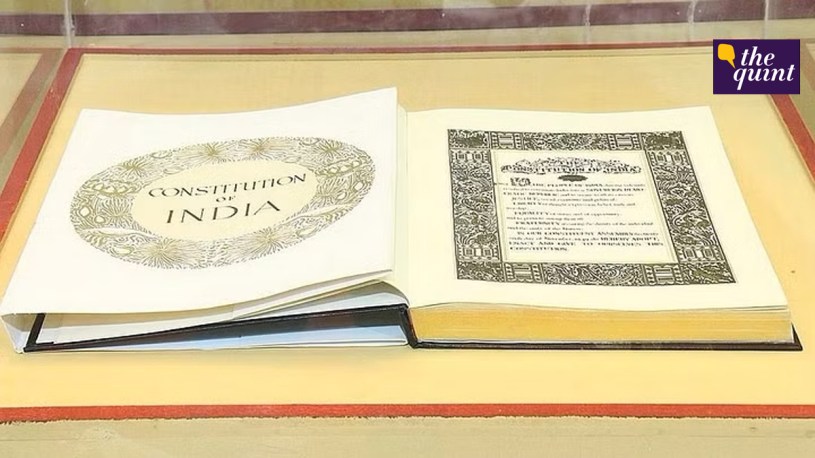 the
quint
CONSTITUTION
OF
INDIA
THE
CONSTITUTION OF INDIA
WE, THE PEOPLE OF INDIA, having solemnly
SOVEREIGN DEMO-
CRATIC REPUBLIC and to secure to all its citizens:
JUSTICE, social, economic and political;
LIBERTY of thought, expression, belief, faith and
worship;
EQUALITY of status and of opportunity;
and to promote among them all
FRATERNITY assuring the dignity of the individual
and the unity of the Nation;
IN OUR CONSTITUENT ASSEMBLY this twenty-
sixth day of November, HEREBY ADOPT,
ENACT AND GIVE TO OURSELVES THIS
CONSTITUTION.